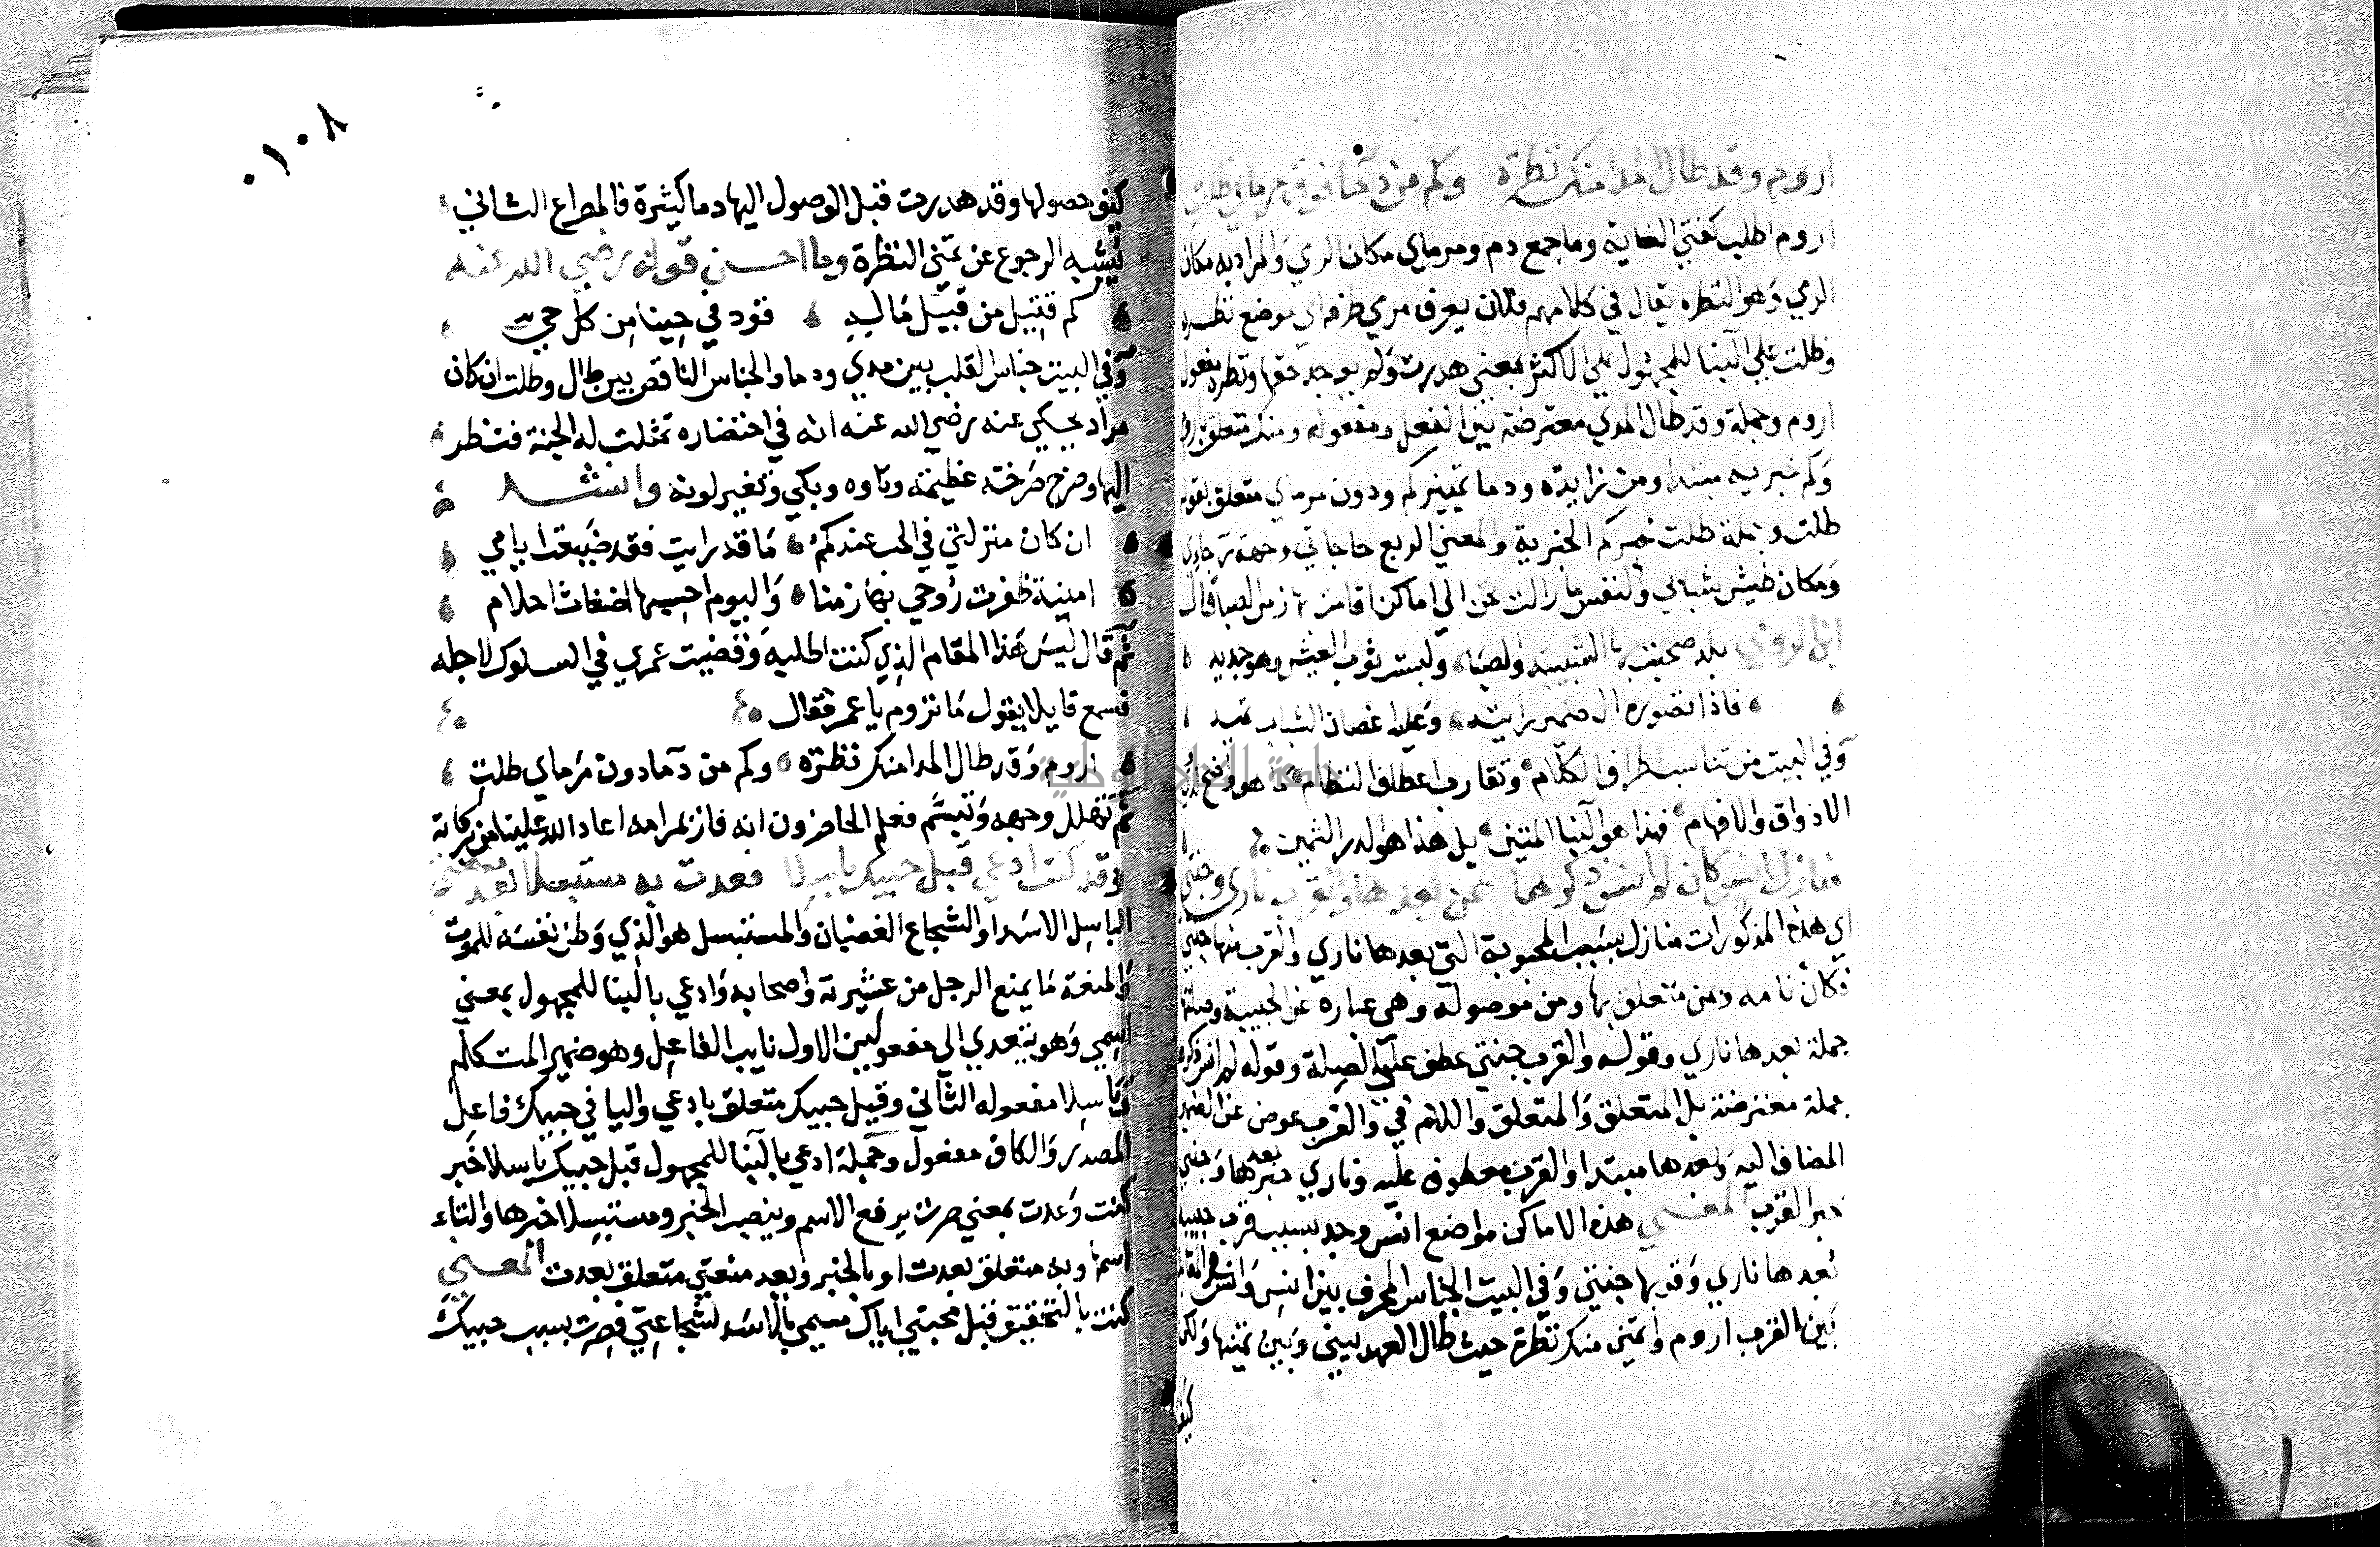 اروم وقد طال المدا منك نظرة وكم من دما دون مرماي طلت
اروم اطلب كفتي الغانية وما جمع دم ومرماي مكان الري والمراد به مكان
الري وهو النظره يقال في كلامهم فلان يعرف مري طرفه اي موضع نظره
وطلت على البنا للمجهول على الاكثر بمعنى هدرت ولم يوجد حقها ونظرة مفعول
اروم وجملة وقد طال المدي معترضة بين الفعل ومفعوله ومنك متعلق باروم
وكم خبريه مبتدا ومن زايدة ودما تمييزكم ودون مرماي متعلق بقوله
طلت وجملة طلت خبركم الخبرية والمعني الربع حاجاتي وجهة ترجاوي
ومكان طيش شبابي والنفس ما زالت تحن الي اماكن اقامتها زمن الصبا قال
ابن الرومي بلد صحبت بها الشبيبة والصبا ولبست ثوب العيش وهو جديد
فاذا تصوره الضمير رايته وعليه اغصان الشباب تميد
وفي البيت من تناسب اطراف الكلام وتقارب اعطاف النظام ما هو واضح لذوي
الاذواق والافهام فهذا هو البنا المتين بل هذا هو الدر الثمين
منازل انس كان لم انس ذكرها بمن بعدها والقرب ناري وجنتي
اي هذه المذكورات منازل بسبب المحبوبة التي بعدها ناري والقرب منها جنتي
فكان تامه ومن متعلق بها ومن موصولة وهي عبارة عن الحبيبة وصلتها
جملة بعدها ناري وقوله والقرب جنتي عطف على الصلة وقوله لم انس ذكرها
جملة معترضة بين المتعلق والمتعلق واللام في والقرب عوض عن الضمير
المضاف اليه وبعدها مبتدا والقرب معطوف عليه وناري خبر بعدها وجنتي
خبر القرب المعنى هذه الاماكن مواضع انس وجد بسبب قرب حبيبة
بعدها ناري وقربها جنتي وفي البيت الجناس المحرف بين انس وانس والمقابلة
بين القرب اروم واتمني منك نظرة حيث طال العهد بيني وبين تمنيها ولكن
كيف
٠١٠٨
كيف حصولها وقد هدرت قبل الوصول اليها دما كثيرة فالمصراع الثاني
يشبه الرجوع عن تمني النظرة وما احسن قوله رضي الله عنه
كم قتيل من قبيل ما له قود في حبنا من كل حي
وفي البيت جناس القلب بين مدي ودما والجناس الناقص بين طال وطلت ان كان
مراد يحكي عنه رضي الله عنه انه في احتضاره تمثلت له الجنة فنظر
اليها وصرخ صرخة عظيمة وتاوه وبكي وتغير لونه وانشد
ان كان منزلتي في الحب عندكم ما قد رايت فقد ضيعت ايامي
امنية ظفرت روحي بها زمنا واليوم احسبها اضغاث احلام
ثم قال ليس هذا المقام الذي كنت اطلبه وقضيت عمري في السلوك لاجله
فسمع قايلا يقول ما تروم يا عمر فقال
اروم وقد طال المدا منك نظرة وكم من دما دون مرماي طلت
ثم تهلل وجهه وتبسم فعلم الحاضرون انه فاز بمرامه اعاد الله علينا من بركاته
وقد كنت ادعي قبل حبيك باسلا فعدت به مستبسلا بعد منعتي
الباسل الاسد او الشجاع الغضبان والمستبسل هو الذي وطن نفسه للموت
والمنعة ما يمنع الرجل من عشيرته واصحابه وادعي بالبنا للمجهول بمعني
اسمي وهو يتعدي الي مفعولين الاول نايب الفاعل وهو ضمير المتكلم
وباسلا مفعوله الثاني وقبل حبيك متعلق بادعي واليا في حبيك فاعل
المصدر والكاف مفعول وجملة ادعي بالبنا للمجهول قبل حبيك باسلا خبر
كنت وعدت بمعني صرت يرفع الاسم وينصب الخبر ومستبسلا خبرها والتاء
اسمها وبه متعلق بعدت او بالخبر وبعد منعتي متعلق بعدت المعني
كنت بالتحقيق قبل محبتي اياك مسمي بالاسد لشجاعتي فصرت بسبب حبيك